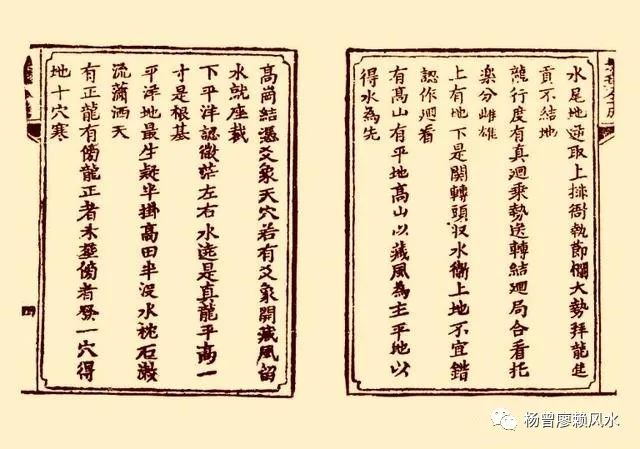 水尾地逆取上排衙執節欄大勢拜龍建
貢不結地
龍行度有真迴乘勢送轉結迴局合看托
楽分雌雄
上有地下是関轉頭収水衛上地不宜錯
認作迴看
有髙山有平地髙山以藏風為主平地以
得水為先
高崗結憑爻象天穴若有爻象開藏風留
水就座裁
下平洋認微茫左右水遶是真龍平高一
寸是根基
平洋地最生疑半掛高田半没水枕石漱
流蕭洒天
有正龍有傍龍正者未塟傍者發一穴得
地十穴寒
四
杨曾廖赖风水